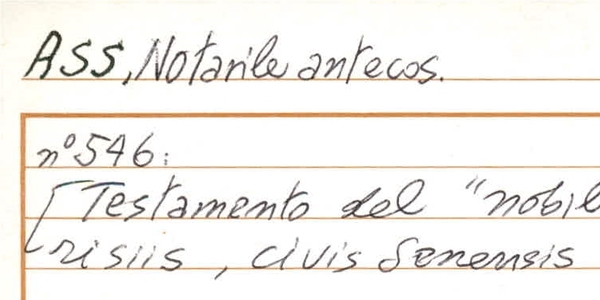 ASS, Notarile antecos.
n° 546:
[Testamento del "nobil
risiis, civis Senensis